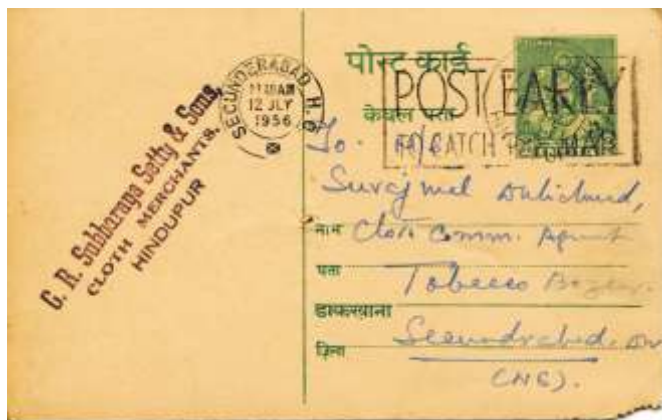 G. R. Subbaraya Setty & Sons,
CLOTH MERCHANTS.
HINDUPUR
SECUNDERABAD. H.
12 JLY
1956
पोस्ट कार्ड
केवल पता
POST EARLY
TO CATCH THE MAIL
To. M/s
Surajmal Dulichand,
नाम Cloth Comm. Agent
पता Tobacco Bazar.
डाकखाना
ज़िला Secundrabad.